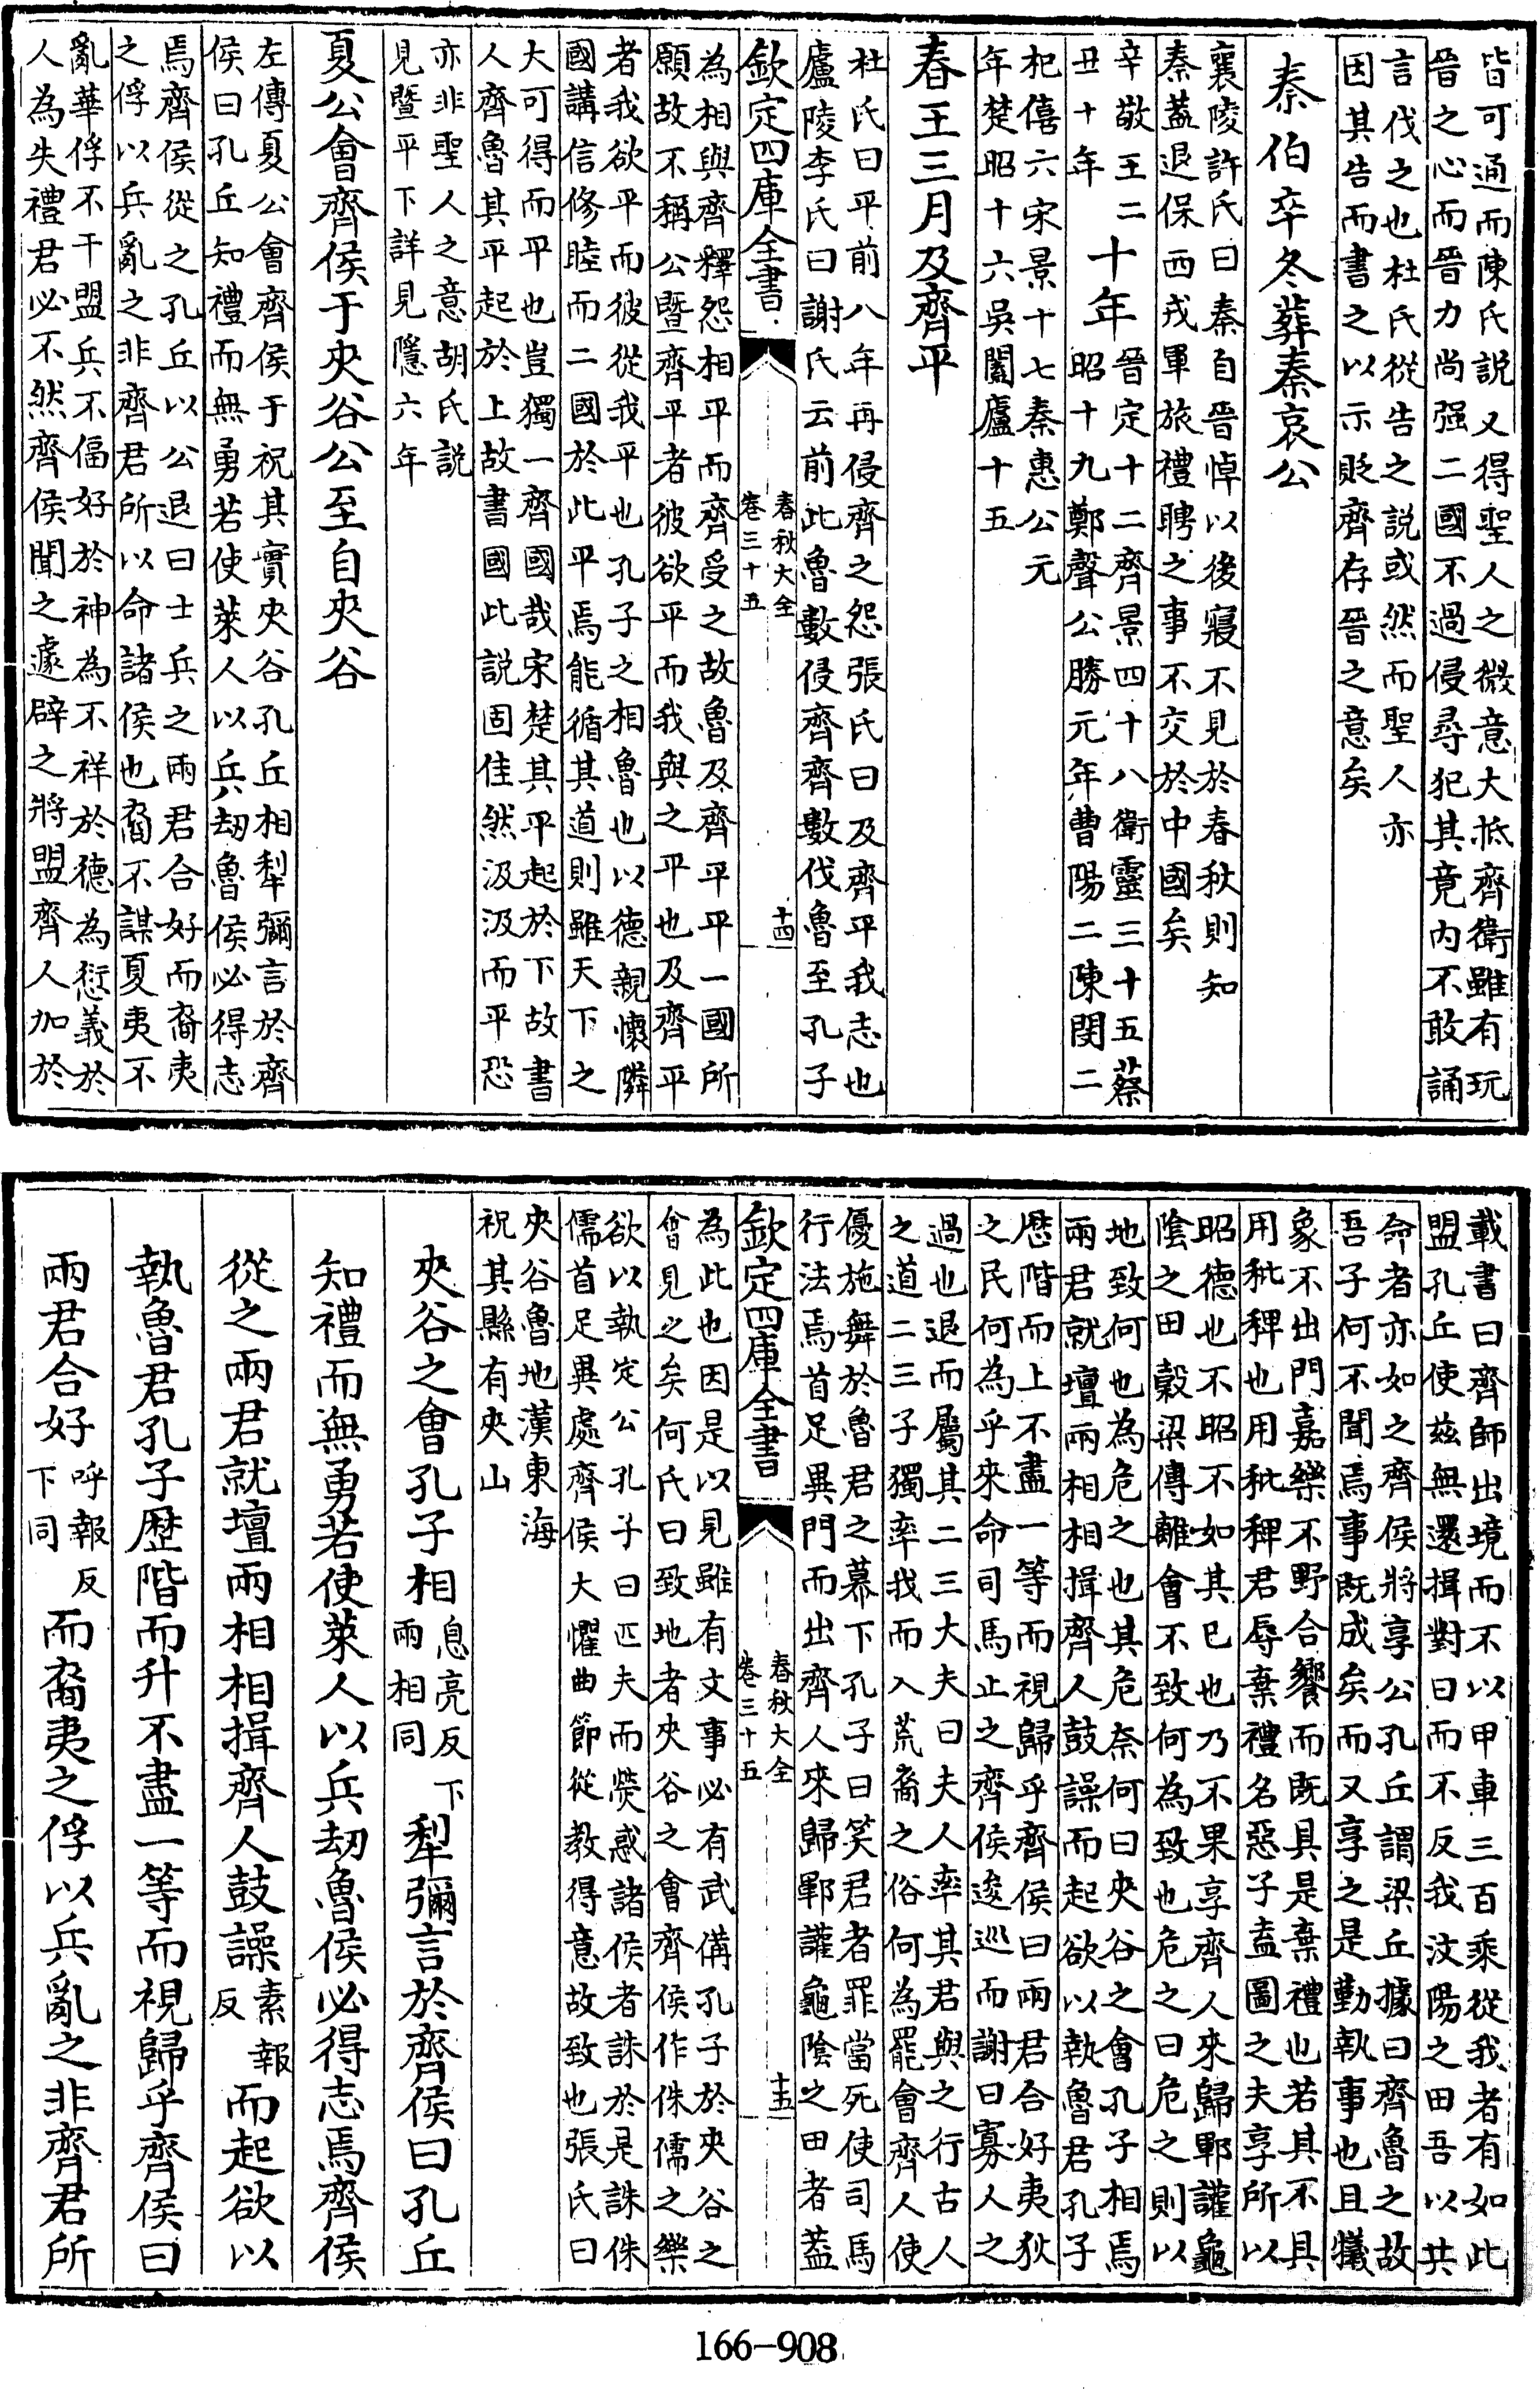 皆可通而陳氏說又得聖人之微意大抵齊衛雖有玩
晉之心而晉力尚强二國不過侵尋犯其竟内不敢誦
言伐之也杜氏從告之説或然而聖人亦
因其告而書之以示貶齊存晉之意矣
秦伯卒冬葬秦哀公
襄陵許氏曰秦自晉悼以後寢不見於春秋則知
秦葢退保西戎軍旅禮聘之事不交於中國矣
辛敬王二
丑十年
十年
晉定十二齊景四十八衛靈三十五蔡
昭十九鄭聲公勝元年曹陽二陳閔二
杞僖六宋景十七秦惠公元
年楚昭十六吳闔廬十五
春王三月及齊平
杜氏曰平前八年再侵齊之怨張氏曰及齊平我志也
廬陵李氏曰謝氏云前此魯數侵齊齊數伐魯至孔子
欽定四庫全書
春秋大全
卷三十五
十四
為相與齊釋怨相平而齊受之故魯及齊平平一國所
願故不稱公暨齊平者彼欲平而我與之平也及齊平
者我欲平而彼從我平也孔子之相魯也以德親懷隣
國講信修睦而二國於此平焉能循其道則雖天下之
大可得而平也豈獨一齊國哉宋楚其平起於下故書
人齊魯其平起於上故書國此説固佳然汲汲而平恐
亦非聖人之意胡氏説
見暨平下詳見隱六年
夏公會齊侯于夾谷公至自夾谷
左傳夏公會齊侯于祝其實夾谷孔丘相犂彌言於齊
侯曰孔丘知禮而無勇若使萊人以兵刼魯侯必得志
焉齊侯從之孔丘以公退曰士兵之兩君合好而裔夷
之俘以兵亂之非齊君所以命諸侯也裔不謀夏夷不
亂華俘不干盟兵不偪好於神為不祥於德為愆義於
人為失禮君必不然齊侯聞之遽辟之將盟齊人加於
載書曰齊師出境而不以甲車三百乘從我者有如此
盟孔丘使兹無還揖對曰而不反我汶陽之田吾以共
命者亦如之齊侯將享公孔丘謂梁丘據曰齊魯之故
吾子何不聞焉事既成矣而又享之是勤執事也且犧
象不出門嘉樂不野合饗而既具是棄禮也若其不具
用秕稗也用秕稗君辱棄禮名惡子盍圖之夫享所以
昭德也不昭不如其已也乃不果享齊人來歸鄆讙龜
陰之田榖梁傳離會不致何為致也危之也危之則以
地致何也為危之也其危奈何曰夾谷之會孔子相焉
兩君就壇兩相相揖齊人鼓譟而起欲以執魯君孔子
歷階而上不盡一等而視歸乎齊侯曰兩君合好夷狄
之民何為乎來命司馬止之齊侯逡巡而謝曰寡人之
過也退而屬其二三大夫曰夫人率其君與之行古人
之道二三子獨率我而入荒裔之俗何為罷會齊人使
優施舞於魯君之幕下孔子曰笑君者罪當死使司馬
行法焉首足異門而出齊人來歸鄆讙龜陰之田者葢
欽定四庫全書
春秋大全
卷三十五
十五
為此也因是以見雖有文事必有武備孔子於夾谷之
會見之矣何氏曰致地者夾谷之會齊侯作侏儒之樂
欲以執定公孔子曰匹夫而熒惑諸侯者誅於是誅侏
儒首足異處齊侯大懼曲節從教得意故致也張氏曰
夾谷魯地漢東海
祝其縣有夾山
夾谷之會孔子相
息亮反下
兩相同
犂彌言於齊侯曰孔丘
知禮而無勇若使萊人以兵刼魯侯必得志焉齊侯
從之兩君就壇兩相相揖齊人鼓譟
素報
反
而起欲以
執魯君孔子歷階而升不盡一等而視歸乎齊侯曰
兩君合好
呼報反
下同
而裔夷之俘以兵亂之非齊君所
166-908